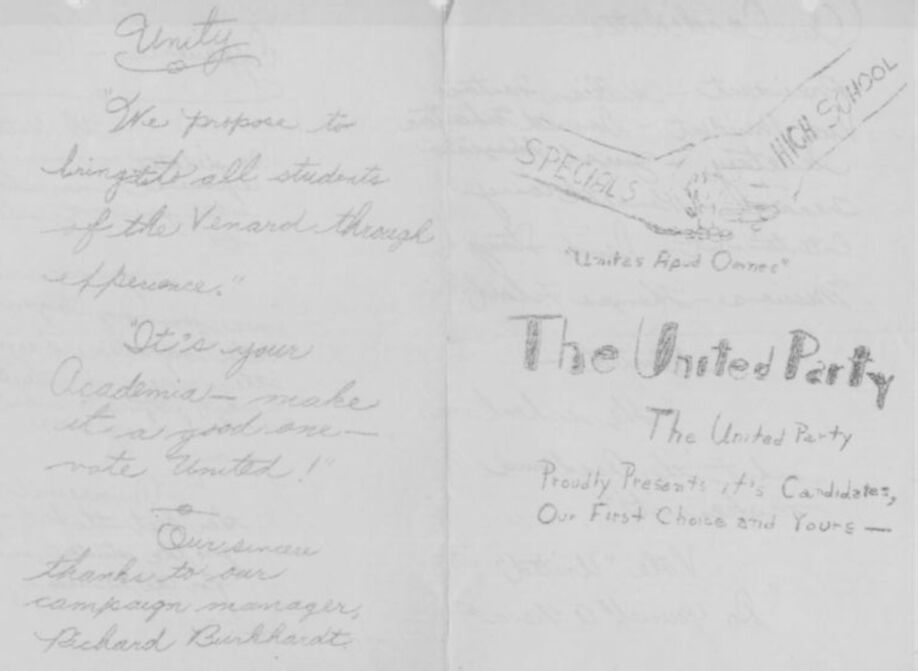 Unity
"We propose to
bring it to all students
of the Venard through
experience."
"It's your
Academia — make
it a good one —
vote United!"
Our sincere
thanks to our
campaign manager,
Richard Burkhardt.
SPECIALS
HIGH SCHOOL
The United Party
The United Party
Proudly Presents it's Candidates,
Our First Choice and Yours —